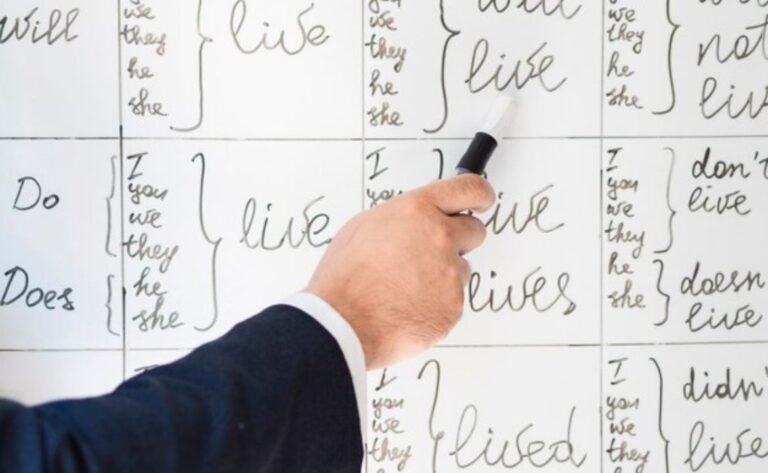 will
you
we
they
he
she
live
you
we
they
he
she
will
live
we
they
he
she
not
live
Do
Does
I
you
we
they
he
she
live
I
you
live
lives
I
you
we
they
he
she
don't
live
doesn
live
I
you
we
they
lived
I
you
we
they
didn'
live